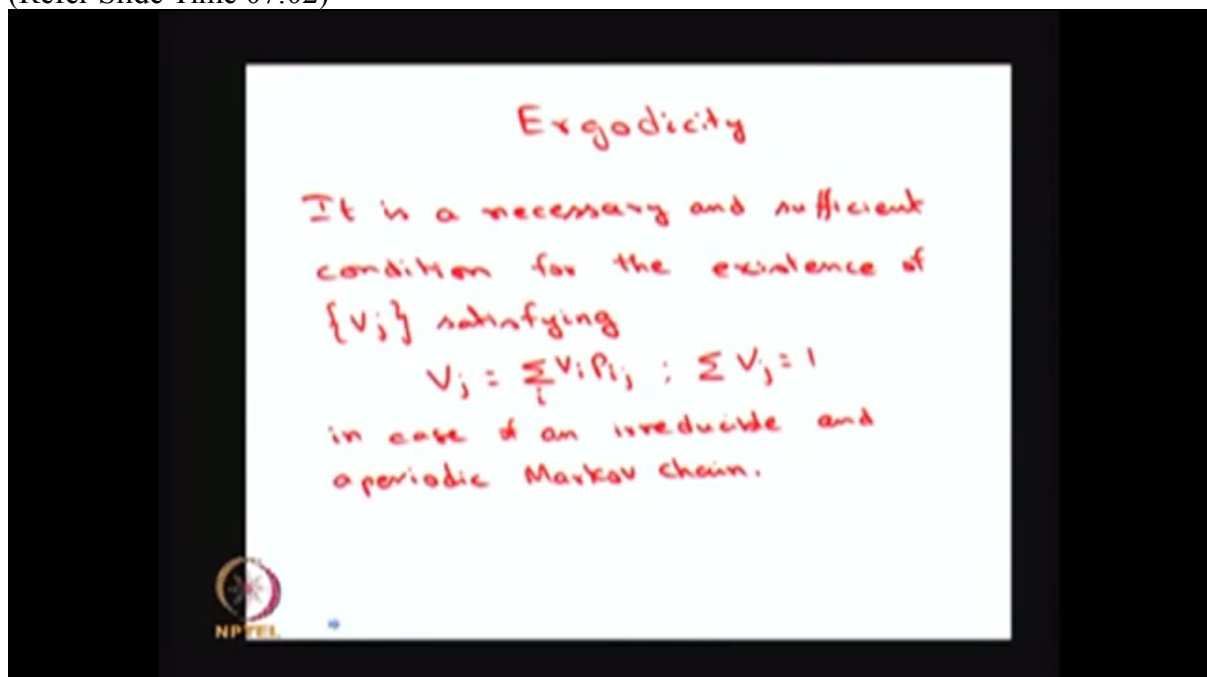 (Refer Slide Time 07:02)
Ergodicity
It is a necessary and sufficient
condition for the existence of
{Vj} satisfying
Vj = Σi Vi Pij ; Σ Vj = 1
in case of an irreducible and
aperiodic Markov chain.
NPTEL